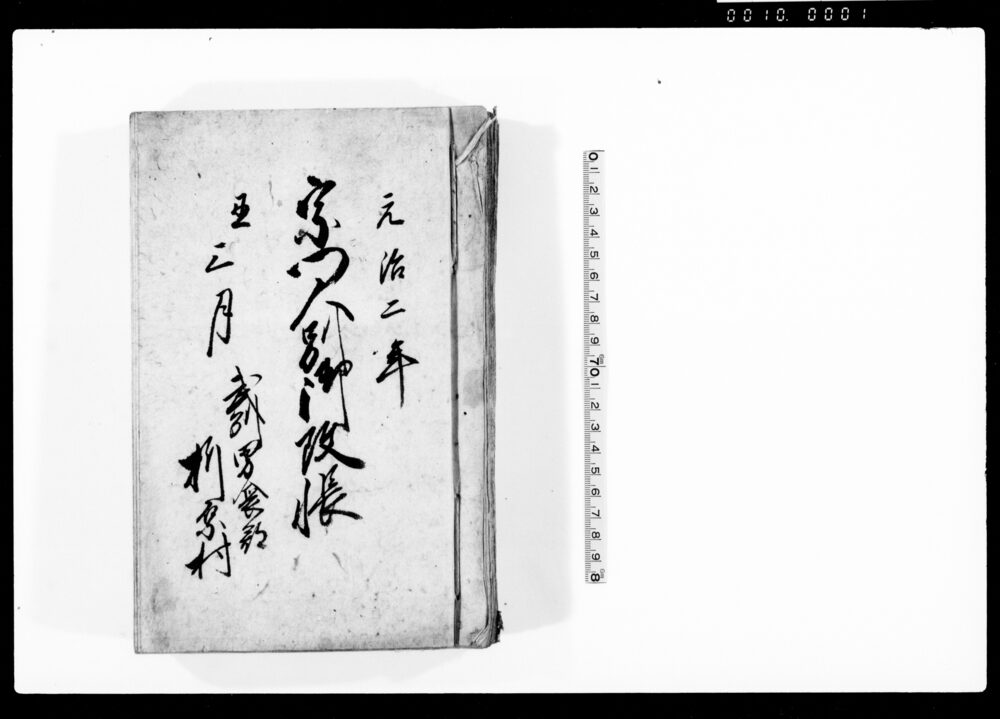 0010. 0001
元治二年
宗門人別御改帳
丑三月
武刕男衾郡
折原村
0 1 2 3 4 5 6 7 8 9 70 1 2 3 4 5 6 7 8 9 8